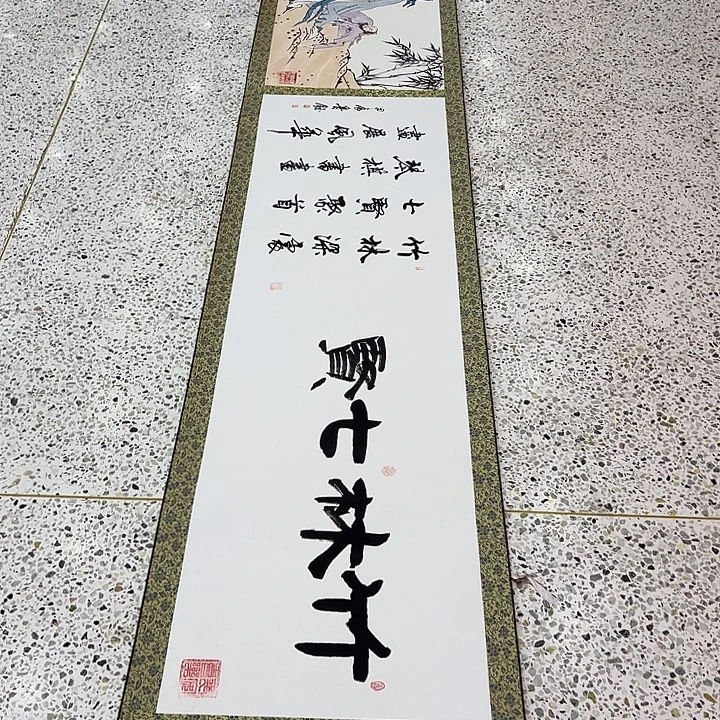 竹林七賢
竹林深處
七賢聚首
琴棋書畫
盡展風華